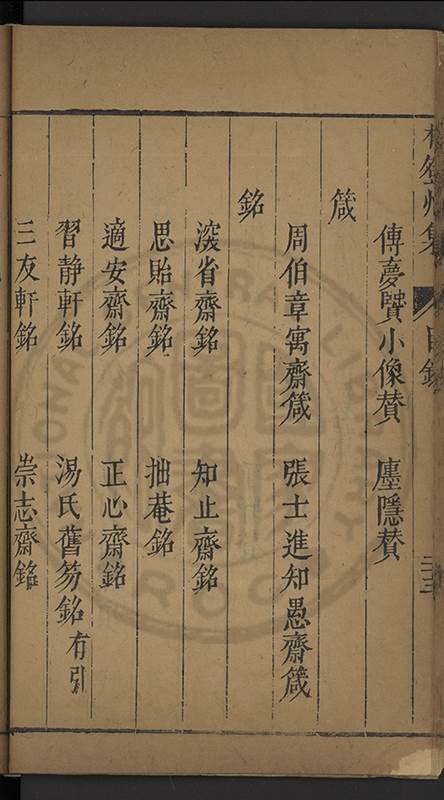 目錄
傳夢賢小像贊 廛隱贊
箴
周伯章寓齋箴 張士進知愚齋箴
銘
深省齋銘 知止齋銘
思貽齋銘 拙菴銘
適安齋銘 正心齋銘
習静軒銘 湯氏舊笏銘有引
三友軒銘 崇志齋銘